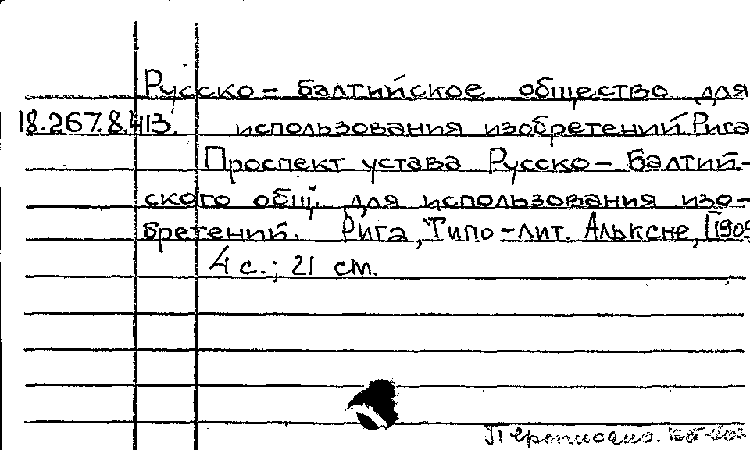 Русско-балтийское общество для
18.267.8.413. использования изобретений. Рига
Проспект устава Русско-Балтий-
ского общ. для использования изо-
бретений. Рига, Типо-лит. Альксне, [1909
4 с.; 21 см.